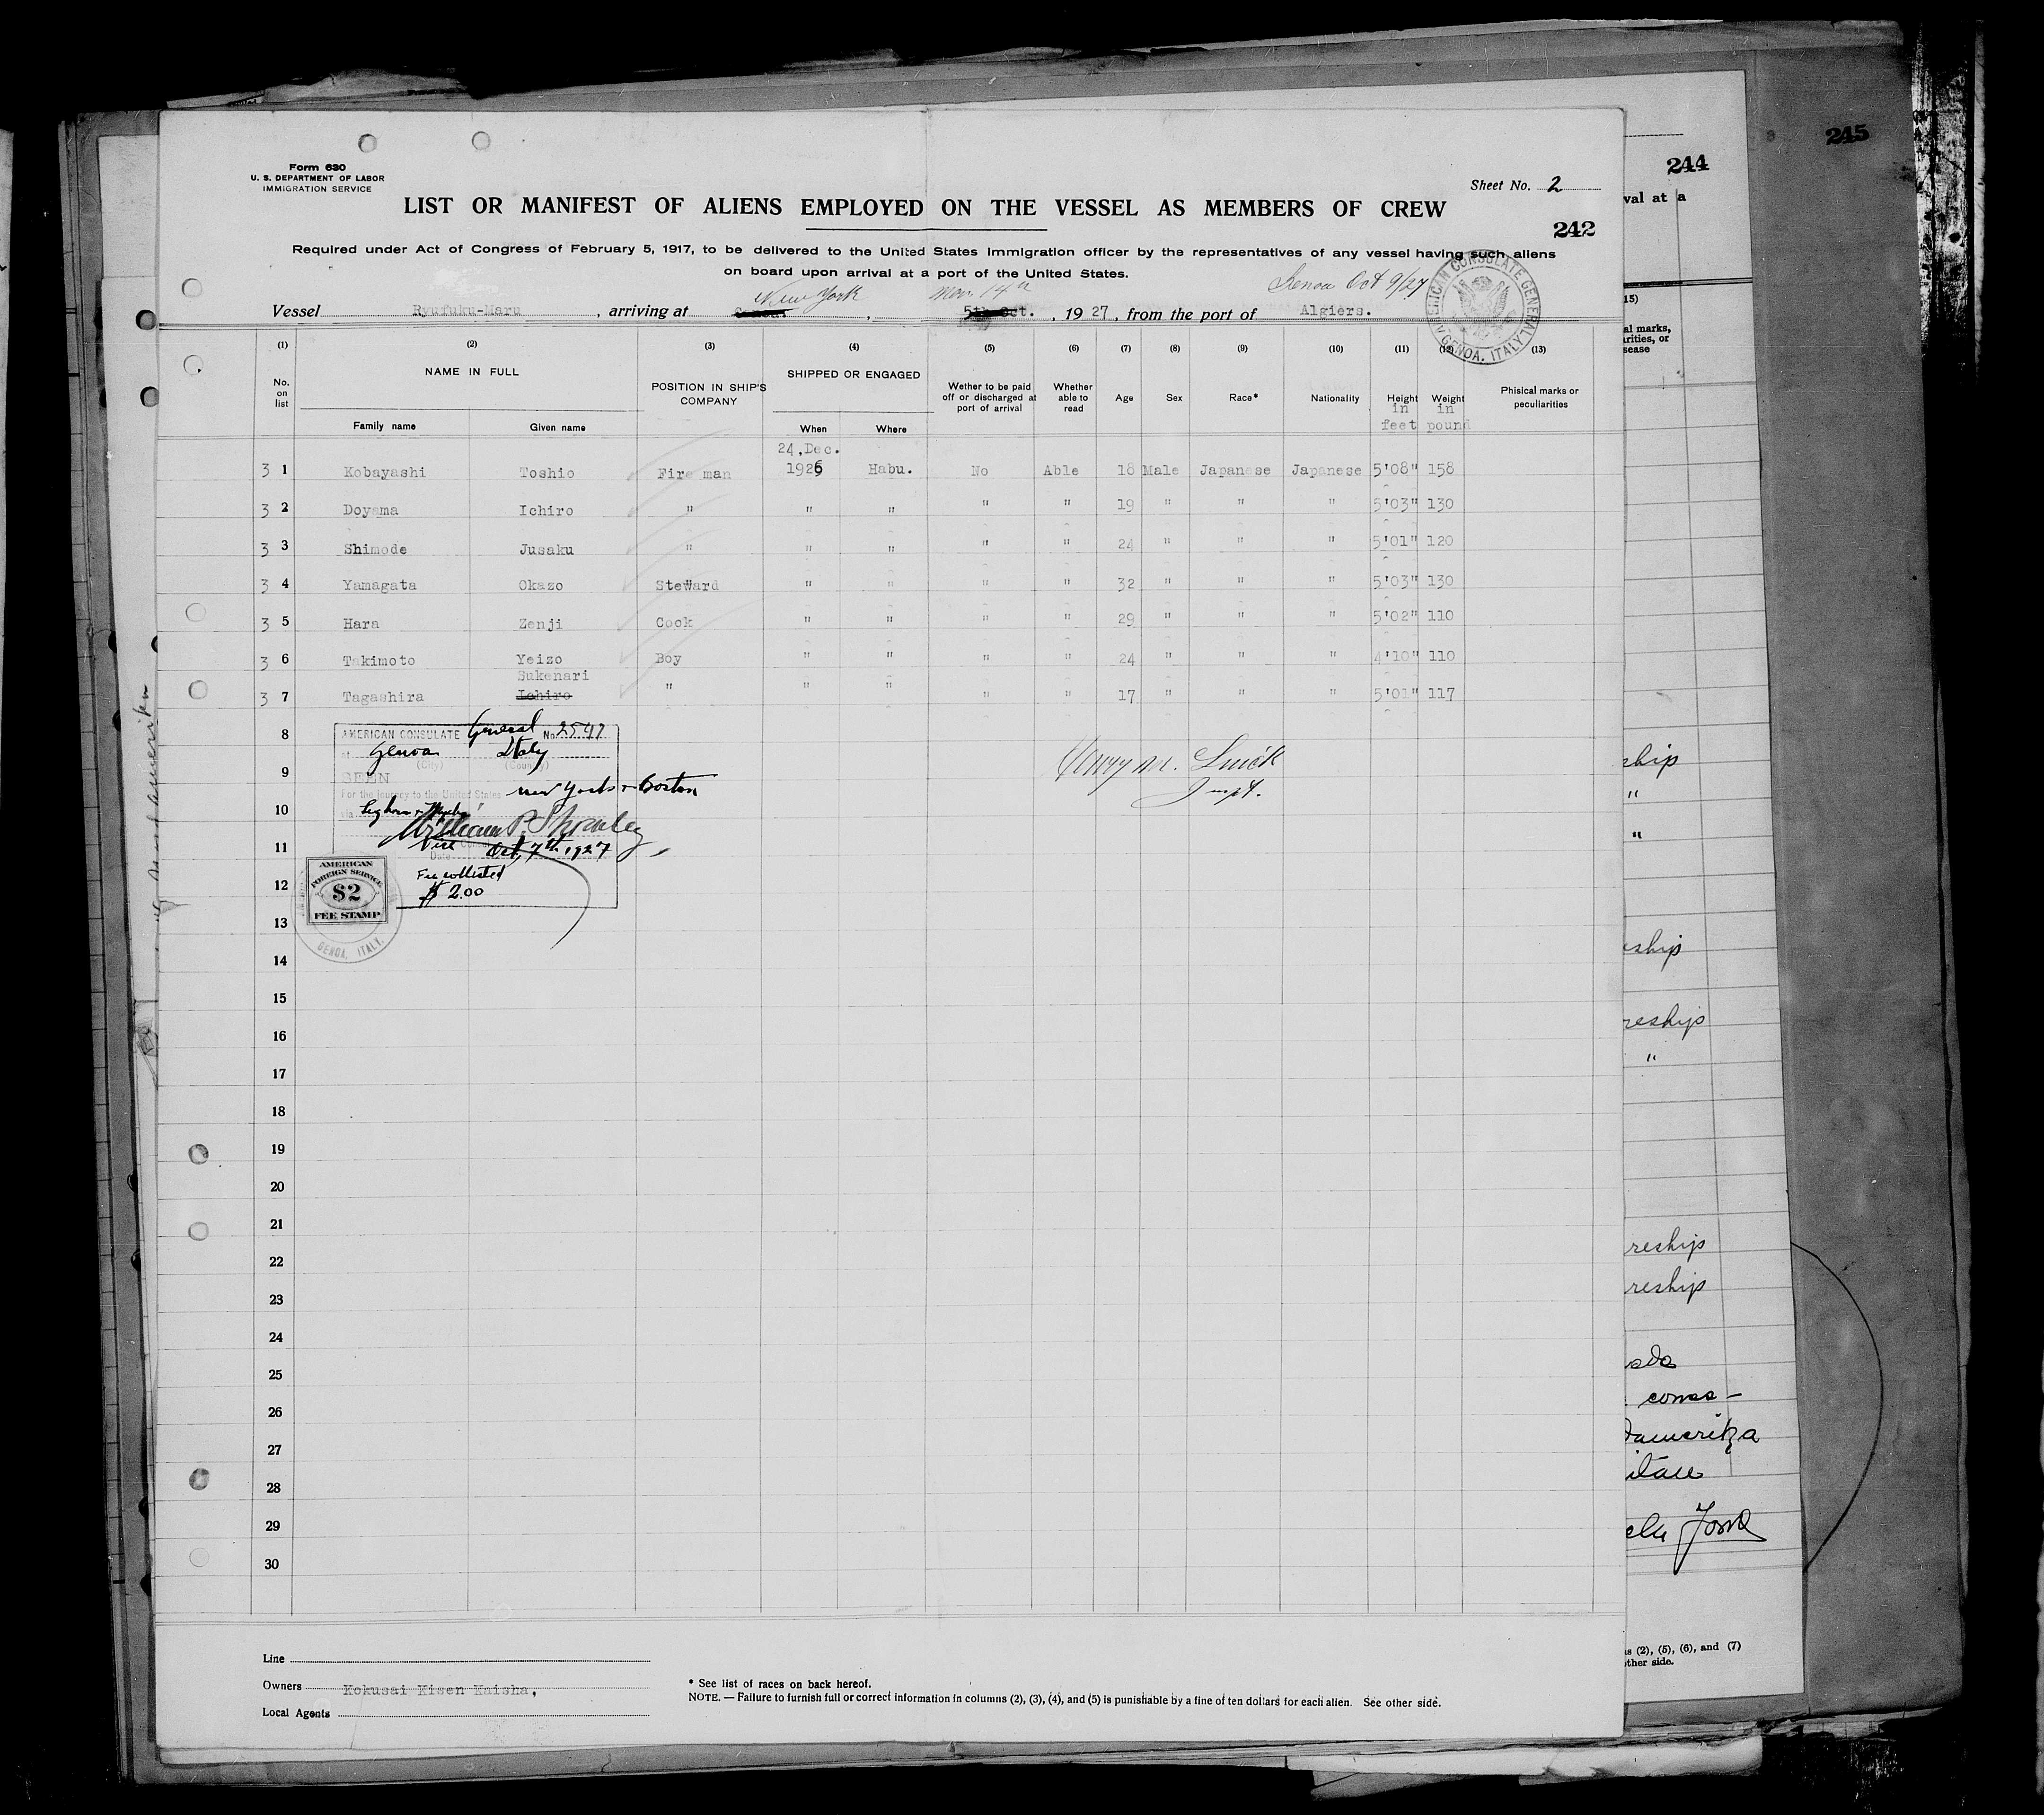 Form 630
U. S. DEPARTMENT OF LABOR
IMMIGRATION SERVICE
Sheet No. 2
LIST OR MANIFEST OF ALIENS EMPLOYED ON THE VESSEL AS MEMBERS OF CREW
242
Required under Act of Congress of February 5, 1917, to be delivered to the United States Immigration officer by the representatives of any vessel having such aliens
on board upon arrival at a port of the United States.
New York Genoa Oct 9/27
Vessel Ryufuku-Maru, arriving at Genoa, 5th Oct., 1927, from the port of Algiers.
AMERICAN CONSULATE GENERAL GENOA, ITALY
(1) (2) (3) (4) (5) (6) (7) (8) (9) (10) (11) (12) (13)
No. on list
NAME IN FULL
Family name Given name
POSITION IN SHIP'S COMPANY
SHIPPED OR ENGAGED
When Where
Wether to be paid off or discharged at port of arrival
Whether able to read
Age Sex Race* Nationality
Height in feet
Weight in pound
Phisical marks or peculiarities
24,Dec.
3 1 Kobayashi Toshio Fire man 1926 Habu. No Able 18 Male Japanese Japanese 5'08" 158
3 2 Doyama Ichiro " " " " " 19 " " " 5'03" 130
3 3 Shimode Jusaku " " " " " 24 " " " 5'01" 120
3 4 Yamagata Okazo Steward " " " " 32 " " " 5'03" 130
3 5 Hara Zenji Cook " " " " 29 " " " 5'02" 110
3 6 Takimoto Yeizo Boy " " " " 24 " " " 4'10" 110
Sukenari
3 7 Tagashira Ichiro " " " " " 17 " " " 5'01" 117
8
9
10
11
12
13
14
15
16
17
18
19
20
21
22
23
24
25
26
27
28
29
30
AMERICAN CONSULATE General No. 2597
at Genoa Italy
(City) (Country)
SEEN
For the journey to the United States New York & Boston
William P. Shockley
Vice Consul
Date Oct, 7th 1927
Fee collected
$ 2.00
AMERICAN
FOREIGN SERVICE
$2
FEE STAMP
GENOA, ITALY.
Line
Owners Kokusai Kisen Kaisha,
Local Agents
* See list of races on back hereof.
NOTE. — Failure to furnish full or correct information in columns (2), (3), (4), and (5) is punishable by a fine of ten dollars for each alien. See other side.
244
val at a
15)
al marks,
rities, or
sease
ship
"
"
ship
reship
"
reship
reship
s (2), (5), (6), and (7)
ther side.
245